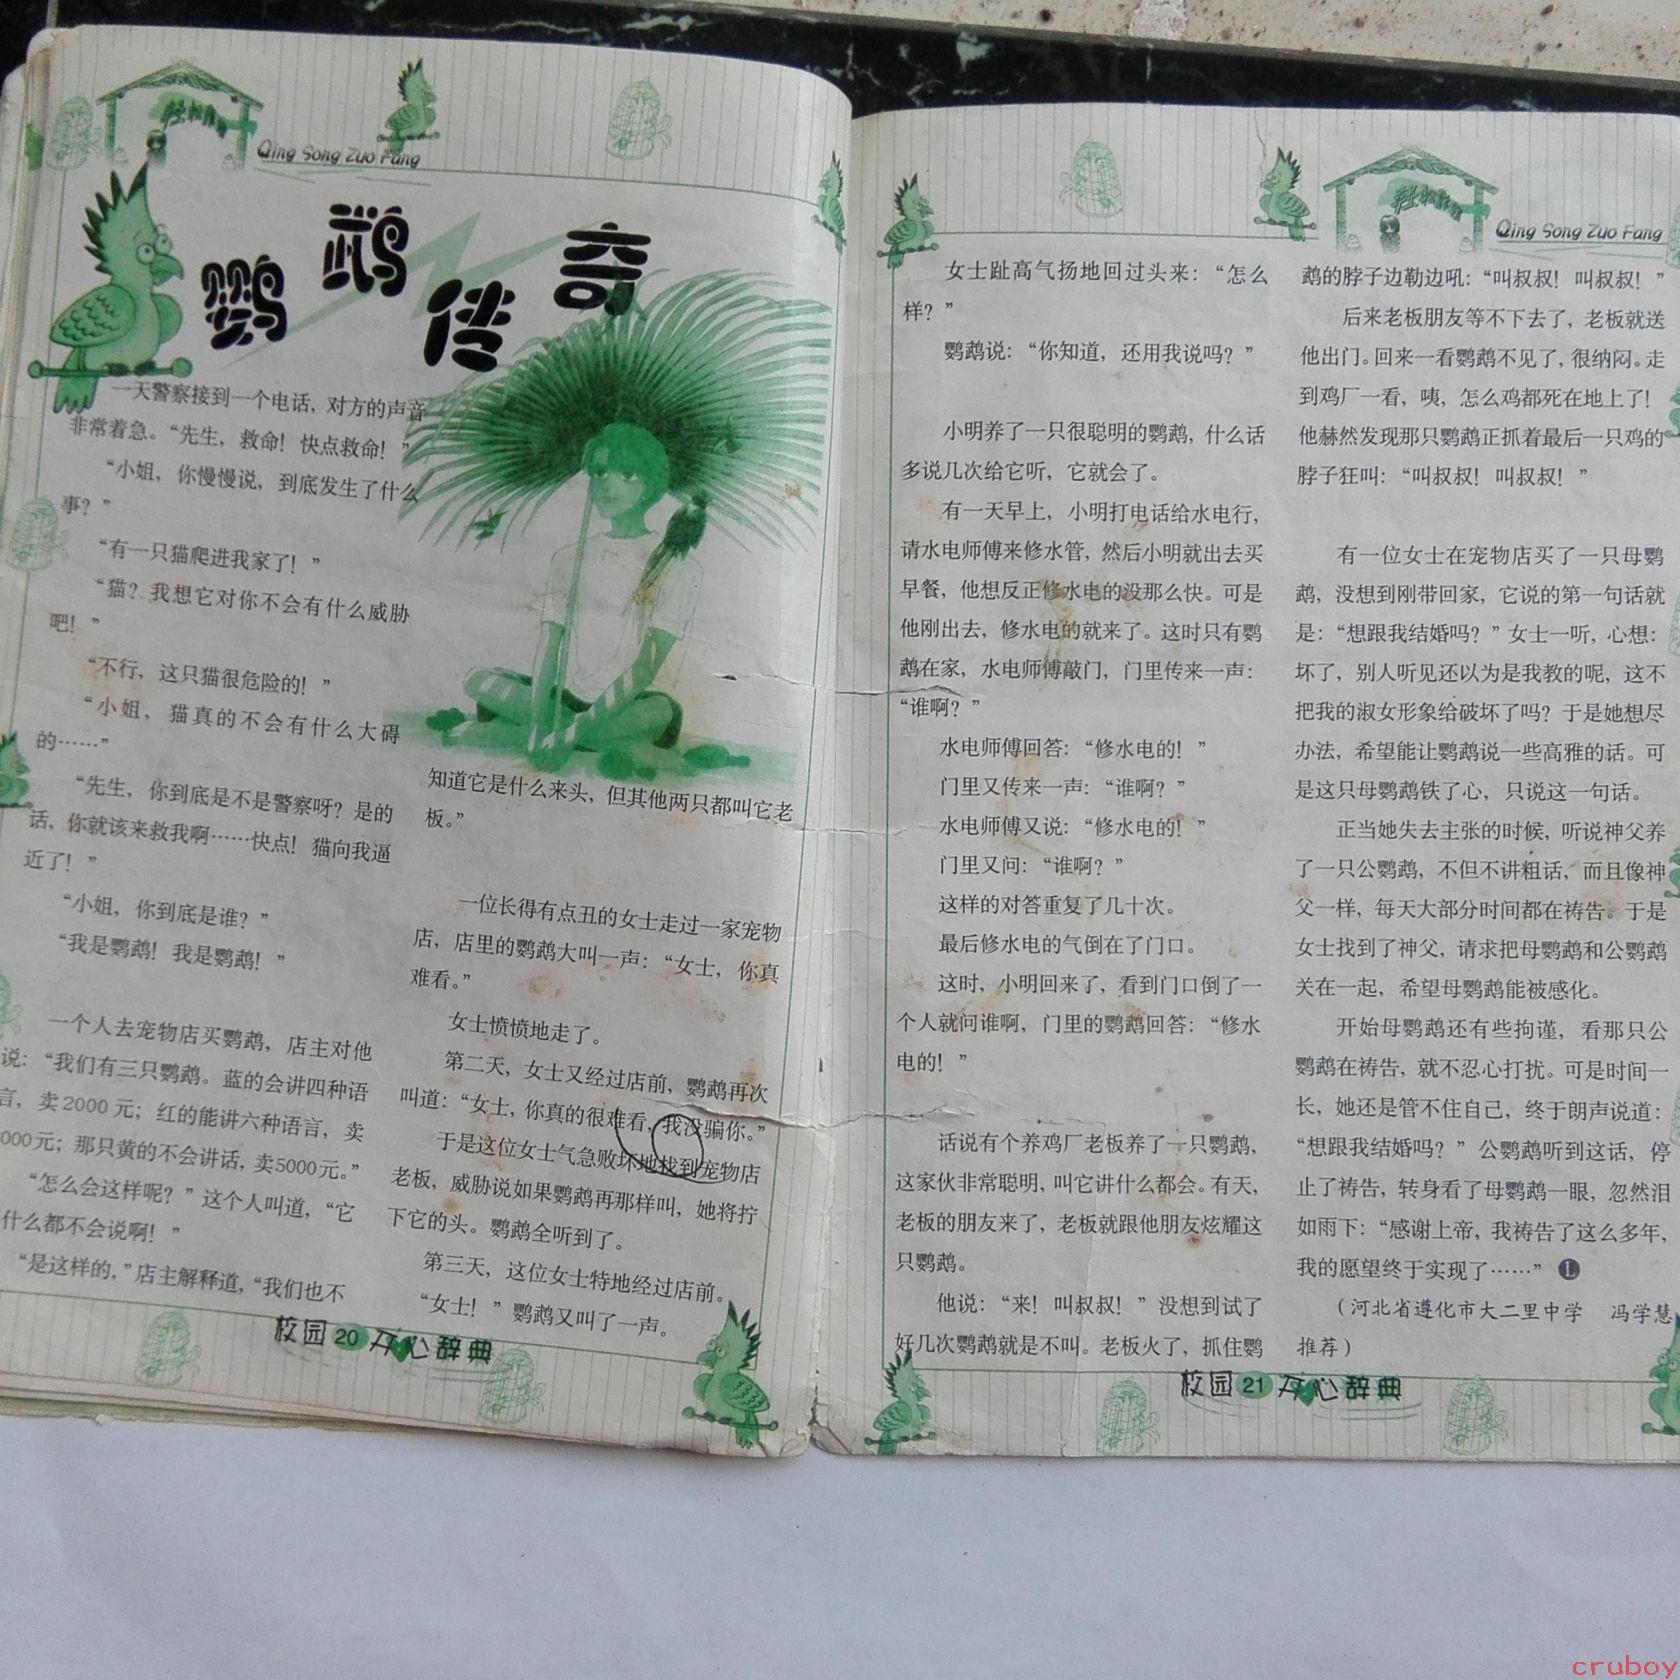 Qing Song Zuo Fang
鹦鹉传奇
一天警察接到一个电话，对方的声音
非常着急。“先生，救命！快点救命！”
“小姐，你慢慢说，到底发生了什么
事？”
“有一只猫爬进我家了！”
“猫？我想它对你不会有什么威胁
吧！”
“不行，这只猫很危险的！”
“小姐，猫真的不会有什么大碍
的……”
“先生，你到底是不是警察呀？是的
话，你就该来救我啊……快点！猫向我逼
近了！”
“小姐，你到底是谁？”
“我是鹦鹉！我是鹦鹉！”
一个人去宠物店买鹦鹉，店主对他
说：“我们有三只鹦鹉。蓝的会讲四种语
言，卖2000元；红的能讲六种语言，卖
000元；那只黄的不会讲话，卖5000元。”
“怎么会这样呢？”这个人叫道，“它
什么都不会说啊！”
“是这样的，”店主解释道，“我们也不
知道它是什么来头，但其他两只都叫它老
板。”
一位长得有点丑的女士走过一家宠物
店，店里的鹦鹉大叫一声：“女士，你真
难看。”
女士愤愤地走了。
第二天，女士又经过店前，鹦鹉再次
叫道：“女士，你真的很难看，我没骗你。”
于是这位女士气急败坏地找到宠物店
老板，威胁说如果鹦鹉再那样叫，她将拧
下它的头。鹦鹉全听到了。
第三天，这位女士特地经过店前。
“女士！”鹦鹉又叫了一声。
校园 20 开心辞典
Qing Song Zuo Fang
女士趾高气扬地回过头来：“怎么
样？”
鹦鹉说：“你知道，还用我说吗？”
小明养了一只很聪明的鹦鹉，什么话
多说几次给它听，它就会了。
有一天早上，小明打电话给水电行，
请水电师傅来修水管，然后小明就出去买
早餐，他想反正修水电的没那么快。可是
他刚出去，修水电的就来了。这时只有鹦
鹉在家，水电师傅敲门，门里传来一声：
“谁啊？”
水电师傅回答：“修水电的！”
门里又传来一声：“谁啊？”
水电师傅又说：“修水电的！”
门里又问：“谁啊？”
这样的对答重复了几十次。
最后修水电的气倒在了门口。
这时，小明回来了，看到门口倒了一
个人就问谁啊，门里的鹦鹉回答：“修水
电的！”
话说有个养鸡厂老板养了一只鹦鹉，
这家伙非常聪明，叫它讲什么都会。有天，
老板的朋友来了，老板就跟他朋友炫耀这
只鹦鹉。
他说：“来！叫叔叔！”没想到试了
好几次鹦鹉就是不叫。老板火了，抓住鹦
鹉的脖子边勒边吼：“叫叔叔！叫叔叔！”
后来老板朋友等不下去了，老板就送
他出门。回来一看鹦鹉不见了，很纳闷。走
到鸡厂一看，咦，怎么鸡都死在地上了！
他赫然发现那只鹦鹉正抓着最后一只鸡的
脖子狂叫：“叫叔叔！叫叔叔！”
有一位女士在宠物店买了一只母鹦
鹉，没想到刚带回家，它说的第一句话就
是：“想跟我结婚吗？”女士一听，心想：
坏了，别人听见还以为是我教的呢，这不
把我的淑女形象给破坏了吗？于是她想尽
办法，希望能让鹦鹉说一些高雅的话。可
是这只母鹦鹉铁了心，只说这一句话。
正当她失去主张的时候，听说神父养
了一只公鹦鹉，不但不讲粗话，而且像神
父一样，每天大部分时间都在祷告。于是
女士找到了神父，请求把母鹦鹉和公鹦鹉
关在一起，希望母鹦鹉能被感化。
开始母鹦鹉还有些拘谨，看那只公
鹦鹉在祷告，就不忍心打扰。可是时间一
长，她还是管不住自己，终于朗声说道：
“想跟我结婚吗？”公鹦鹉听到这话，停
止了祷告，转身看了母鹦鹉一眼，忽然泪
如雨下：“感谢上帝，我祷告了这么多年，
我的愿望终于实现了……” L
（河北省遵化市大二里中学 冯学慧
推荐）
校园 21 开心辞典
cruboy